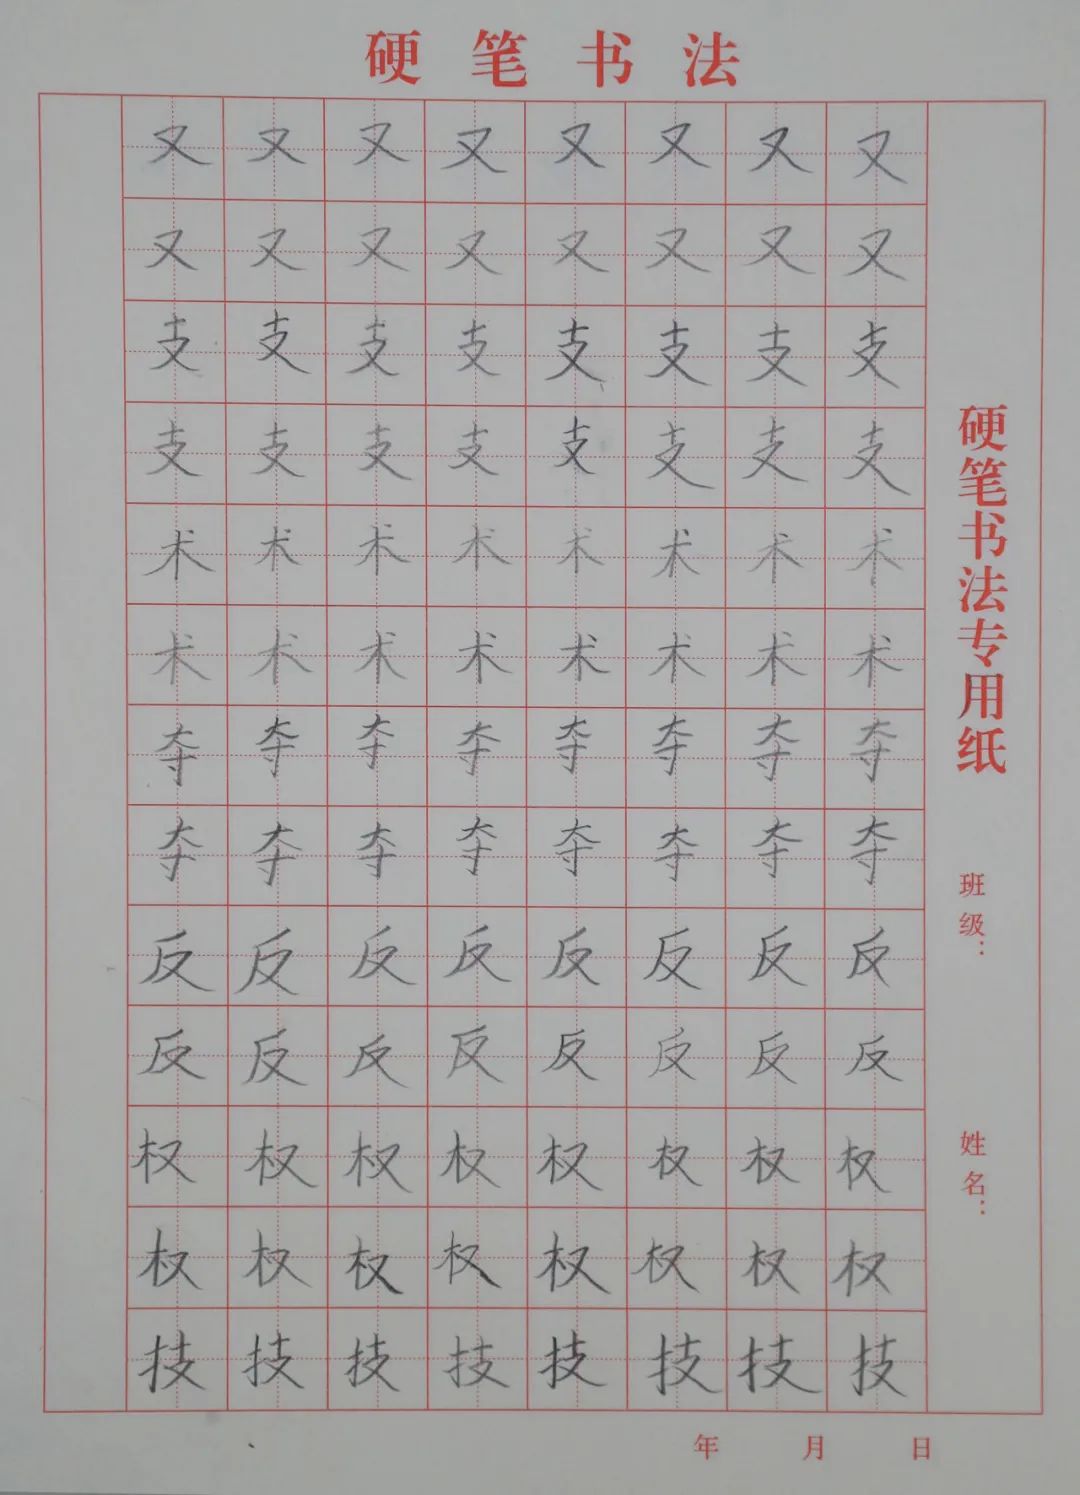 硬笔书法
又又又又又又又又
又又又又又又又又
支支支支支支支支
支支支支支支支支
术术术术术术术术
术术术术术术术术
夺夺夺夺夺夺夺夺
夺夺夺夺夺夺夺夺
反反反反反反反反
反反反反反反反反
权权权权权权权权
权权权权权权权权
技技技技技技技技
硬笔书法专用纸
班级：
姓名：
年 月 日